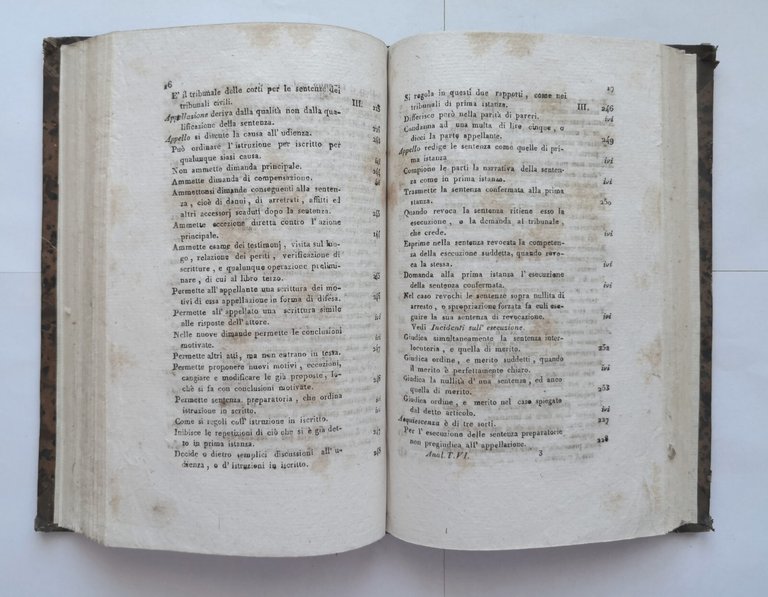 16
E' il tribunale delle corti per le sentenze dei
tribunali civili. III. 218
Appellazione deriva dalla qualità non dalla qua-
lificazione della sentenza.
Appello si discute la causa all' udienza.
Può ordinare l'istruzione per iscritto per
qualunque siasi causa. ivi
Non ammette dimanda principale.
Ammette dimanda di compensazione. ivi
Ammettonsi dimande conseguenti alla senten-
za, cioè di danni, di arretrati, affitti ed
altri accessorj scaduti dopo la sentenza.
Ammette eccezione diretta contro l'azione
principale.
Ammette esame dei testimonj, visita sul luo-
go, relazione dei periti, verificazione di
scritture, e qualunque operazione prelimi-
nare, di cui al libro terzo.
Permette all' appellante una scrittura dei mo-
tivi di essa appellazione in forma di difesa. ivi
Permette all' appellato una scrittura simile
alle risposte dell' attore. ivi
Nelle nuove dimande permette le conclusioni
motivate. ivi
Permette altri atti, ma non entrano in tassa. 247
Permette proporre nuovi motivi, eccezioni,
cangiare e modificare le già proposte, fo-
chè si fa con conclusioni motivate.
Permette sentenza preparatoria, che ordina
istruzione in scritto. ivi
Come si regoli coll' istruzione in iscritto. ivi
Inibisce le repetizioni di ciò che si è già det-
to in prima istanza. 247
Decide o dietro semplici discussioni all' u-
dienza, o d' istruzioni in iscritto.
17
Si regola in questi due rapporti, come nei
tribunali di prima istanza. III. 246
Differisce però nella parità di pareri. ivi
Condanna ad una multa di lire cinque, o
dieci la parte appellante. 249
Appello redige le sentenze come quelle di pri-
ma istanza ivi
Compione le parti la narrativa della senten-
za come in prima istanza. ivi
Trasmette la sentenza confermata alla prima
stanza. 250
Quando revoca la sentenza ritiene esso la
esecuzione, o la demanda al tribunale,
che crede. ivi
Esprime nella sentenza revocata la competen-
za della esecuzione suddetta, quando revo-
ca la stessa. ivi
Demanda alla prima istanza l'esecuzione
della sentenza confermata. ivi
Nel caso revochi le sentenze sopra nullità di
arresto, o spropriazione forzata fa culi ese-
guire la sua sentenza di revocazione. ivi
Vedi Incidenti sull' esecuzione.
Giudica simultaneamente la sentenza inter-
locutoria, e quella di merito. 252
Giudica ordine, e merito suddetti, quando
il merito è perfettamente chiaro. ivi
Giudica la nullità d' una sentenza, ed anco
quella di merito. 253
Giudica ordine, e merito nel caso spiegato
dal detto articolo. ivi
Acquiescenza è di tre sorti. 227
Per l' esecuzione delle sentenza preparatorie
non pregiudica all' appellazione. 228
Anal. T. VI. 3